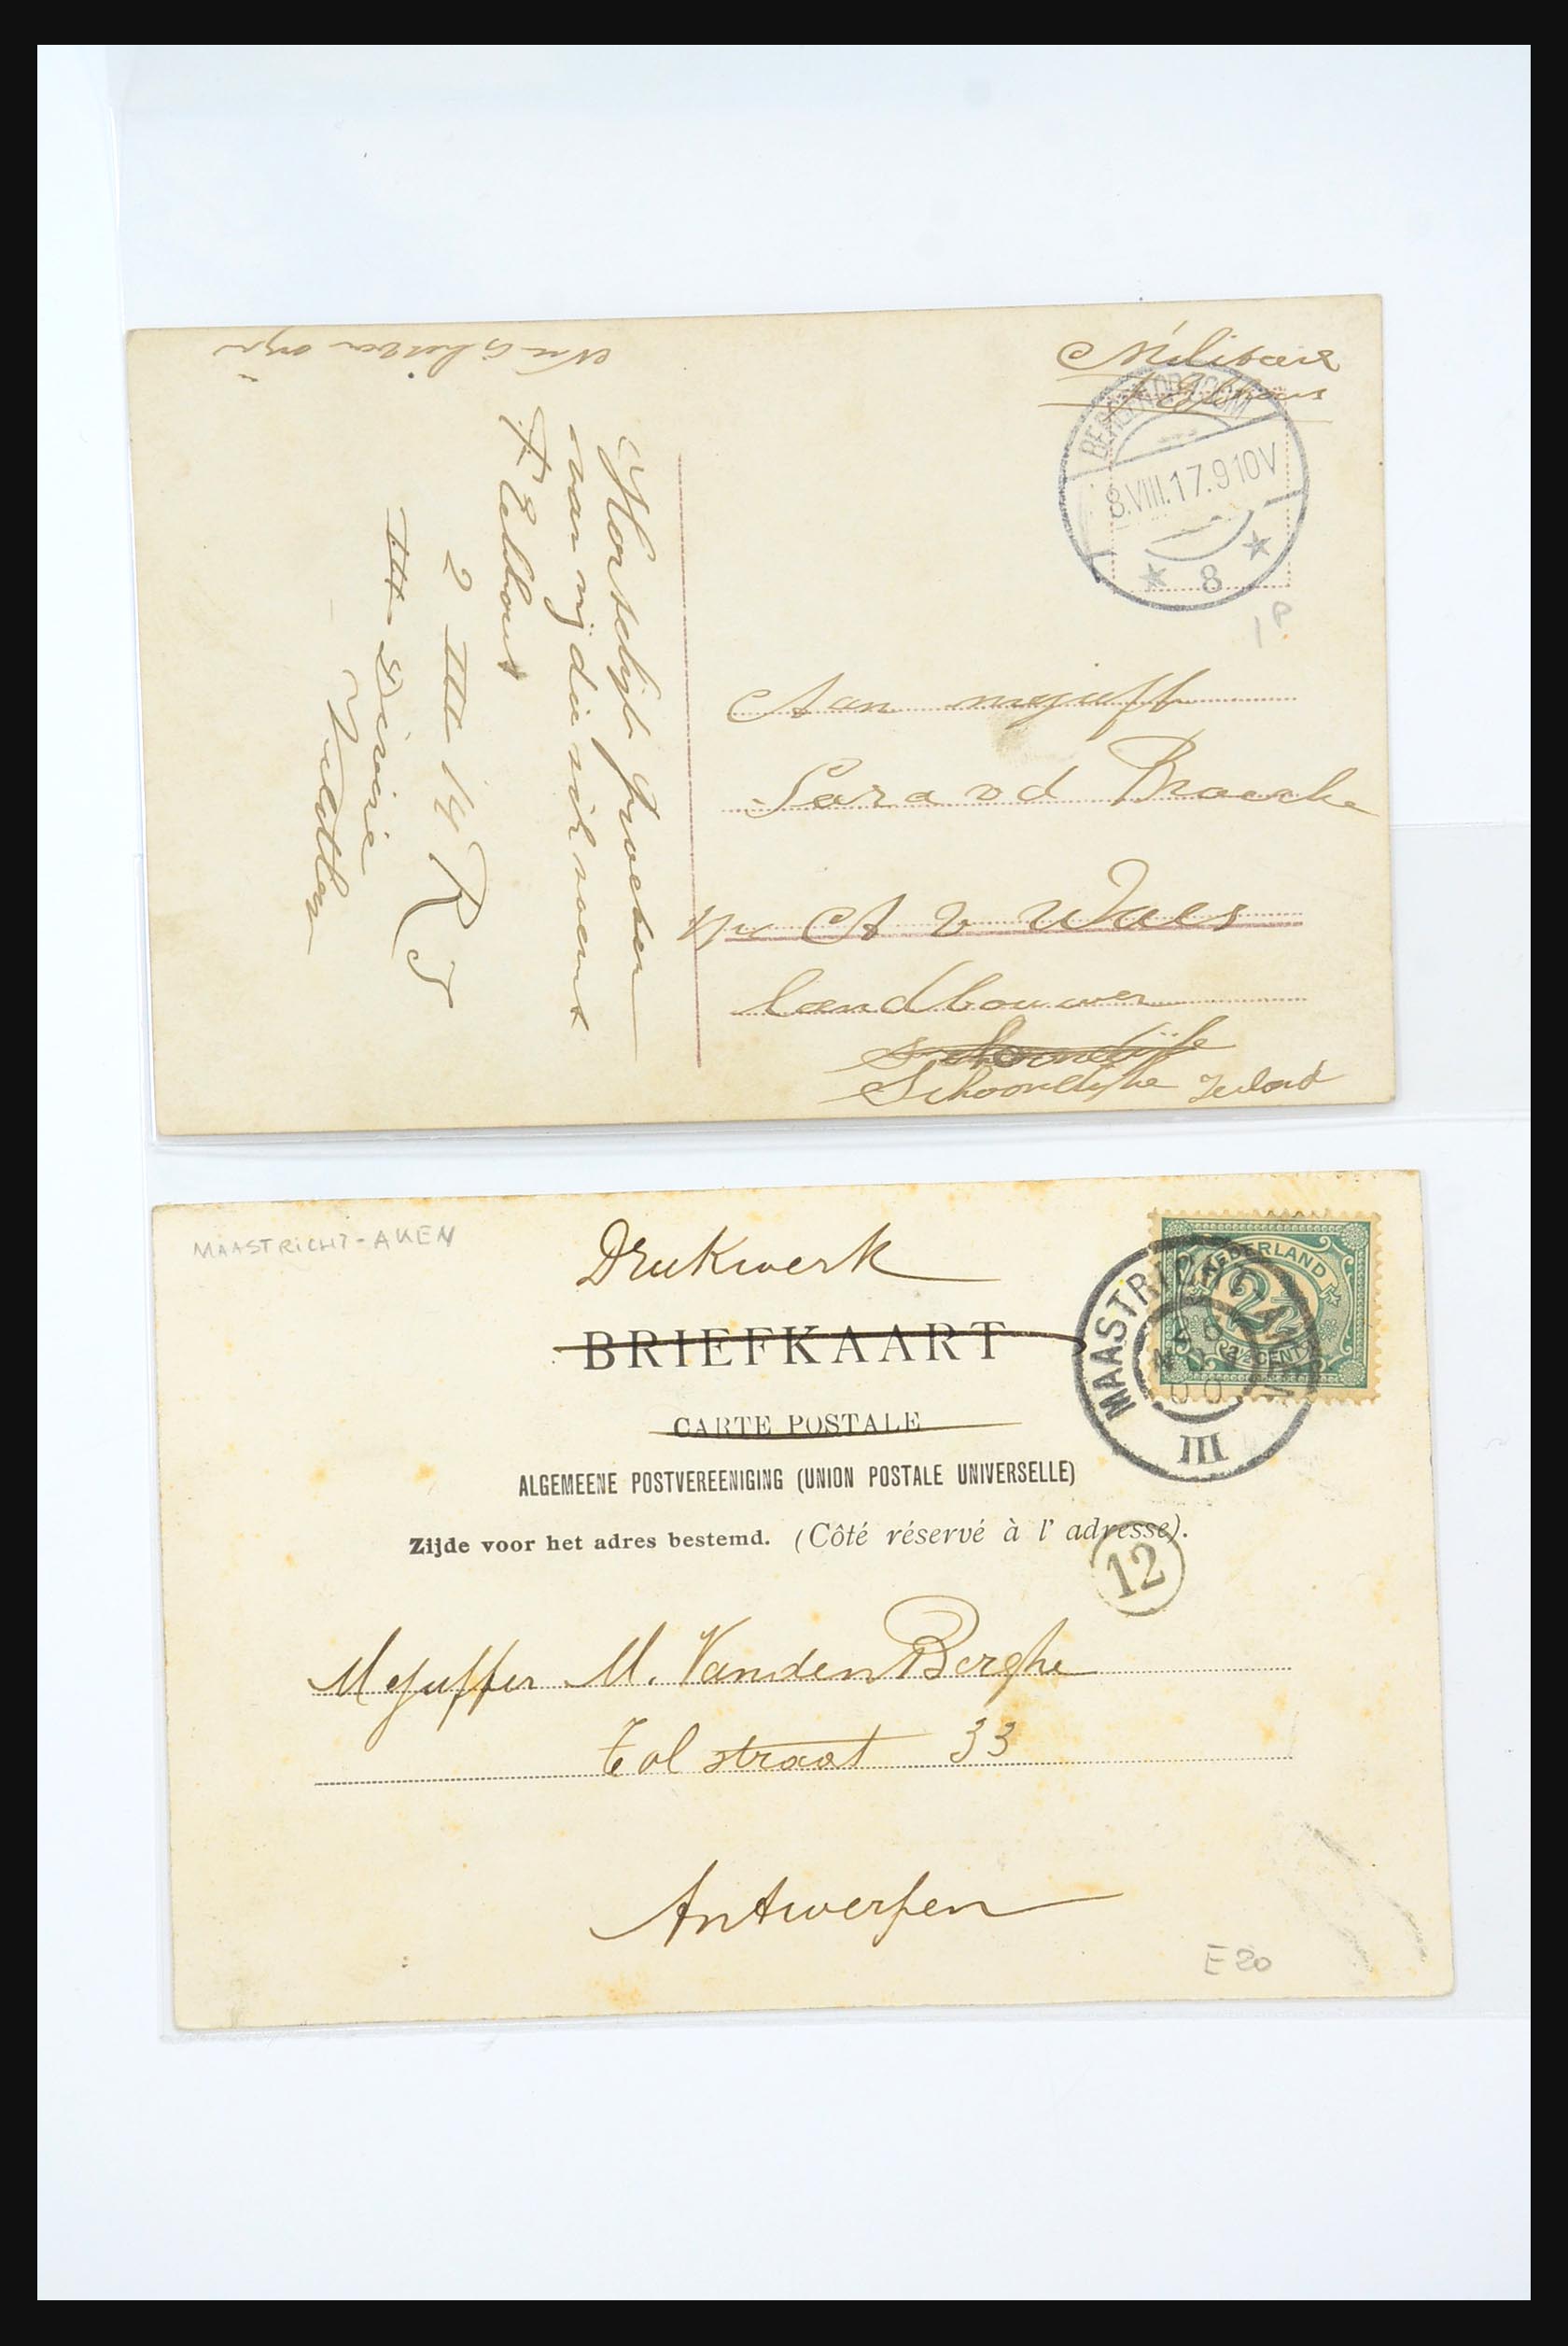 Militair
F Eekhout
BERGEN OP ZOOM
8.VIII.17.9 10V
8
1P.
Aan mejuff
Sara v d Braecke
p/u A v Waes
landbouwer
Schoondijke
Schoondijke Zeeland
Hartelijk groeten
van mij die zich noemt
F Eekhout
2 III 14 R J
III Divisie
Veldleger
MAASTRICHT-AKEN
Drukwerk
BRIEFKAART
CARTE POSTALE
ALGEMEENE POSTVEREENIGING (UNION POSTALE UNIVERSELLE)
Zijde voor het adres bestemd. (Côté réservé à l' adresse).
NEDERLAND
2½
2½ CENT
MAASTRICHT-AKEN
III
12
Mejuffer M. VandenBerghe
Tolstraat 33
Antwerpen
E 20